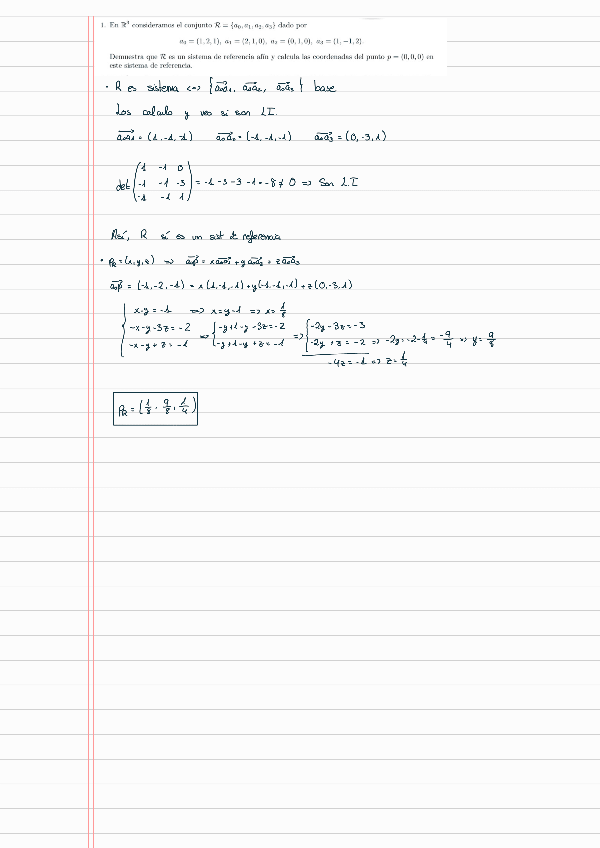 1. En ℝ³ consideramos el conjunto R = {a₀, a₁, a₂, a₃} dado por
a₀ = (1, 2, 1), a₁ = (2, 1, 0), a₂ = (0, 1, 0), a₃ = (1, −1, 2)
Demuestra que R es un sistema de referencia afín y calcula las coordenadas del punto p = (0, 0, 0) en
este sistema de referencia.
· R es sistema <=> {a₀a₁, a₀a₂, a₀a₃} base
Los calculo y veo si son LI.
a₀a₁ = (1, -1, -1) a₀a₂ = (-1, -1, -1) a₀a₃ = (0, -3, 1)
det (1 -1 0
-1 -1 -3
-1 -1 1) = -1 -3 -3 -1 = -8 ≠ 0 => Son L.I
Así, R sí es un sist de referencia
· P_R = (x, y, z) => a₀p = x a₀a₁ + y a₀a₂ + z a₀a₃
a₀p = (-1, -2, -1) = x(1, -1, -1) + y(-1, -1, -1) + z(0, -3, 1)
{ x - y = -1 => x = y - 1 => x = 1/8
-x - y - 3z = -2 => { -y + 1 - y - 3z = -2 => { -2y - 3z = -3
-x - y + z = -1 -y + 1 - y + z = -1 -2y + z = -2 => -2y = -2 - 1/4 = -9/4 => y = 9/8
-4z = -1 => z = 1/4
P_R = (1/8, 9/8, 1/4)